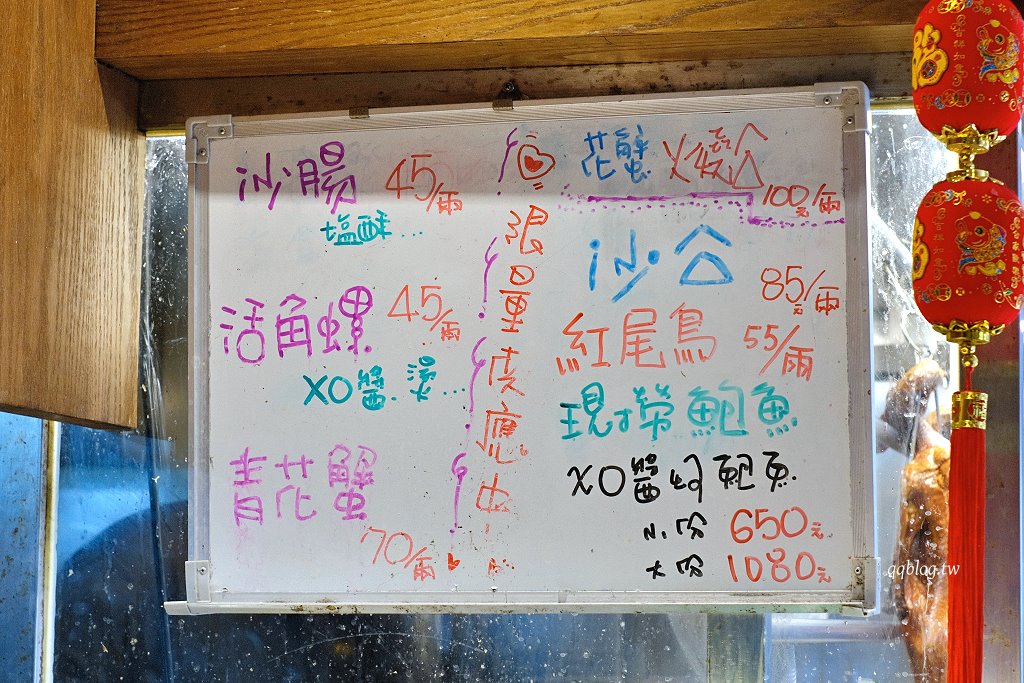 沙腸 45/兩
塩酥...
活角螺 45/兩
XO醬.燙...
青花蟹
70/兩
限量供應中
花蟹 火燒公
100元/兩
沙公
85元/兩
紅尾鳥 55/兩
現撈鮑魚
XO醬炒鮑魚.
小份 650元
大份 1080元
qqblog.tw
吉祥如意